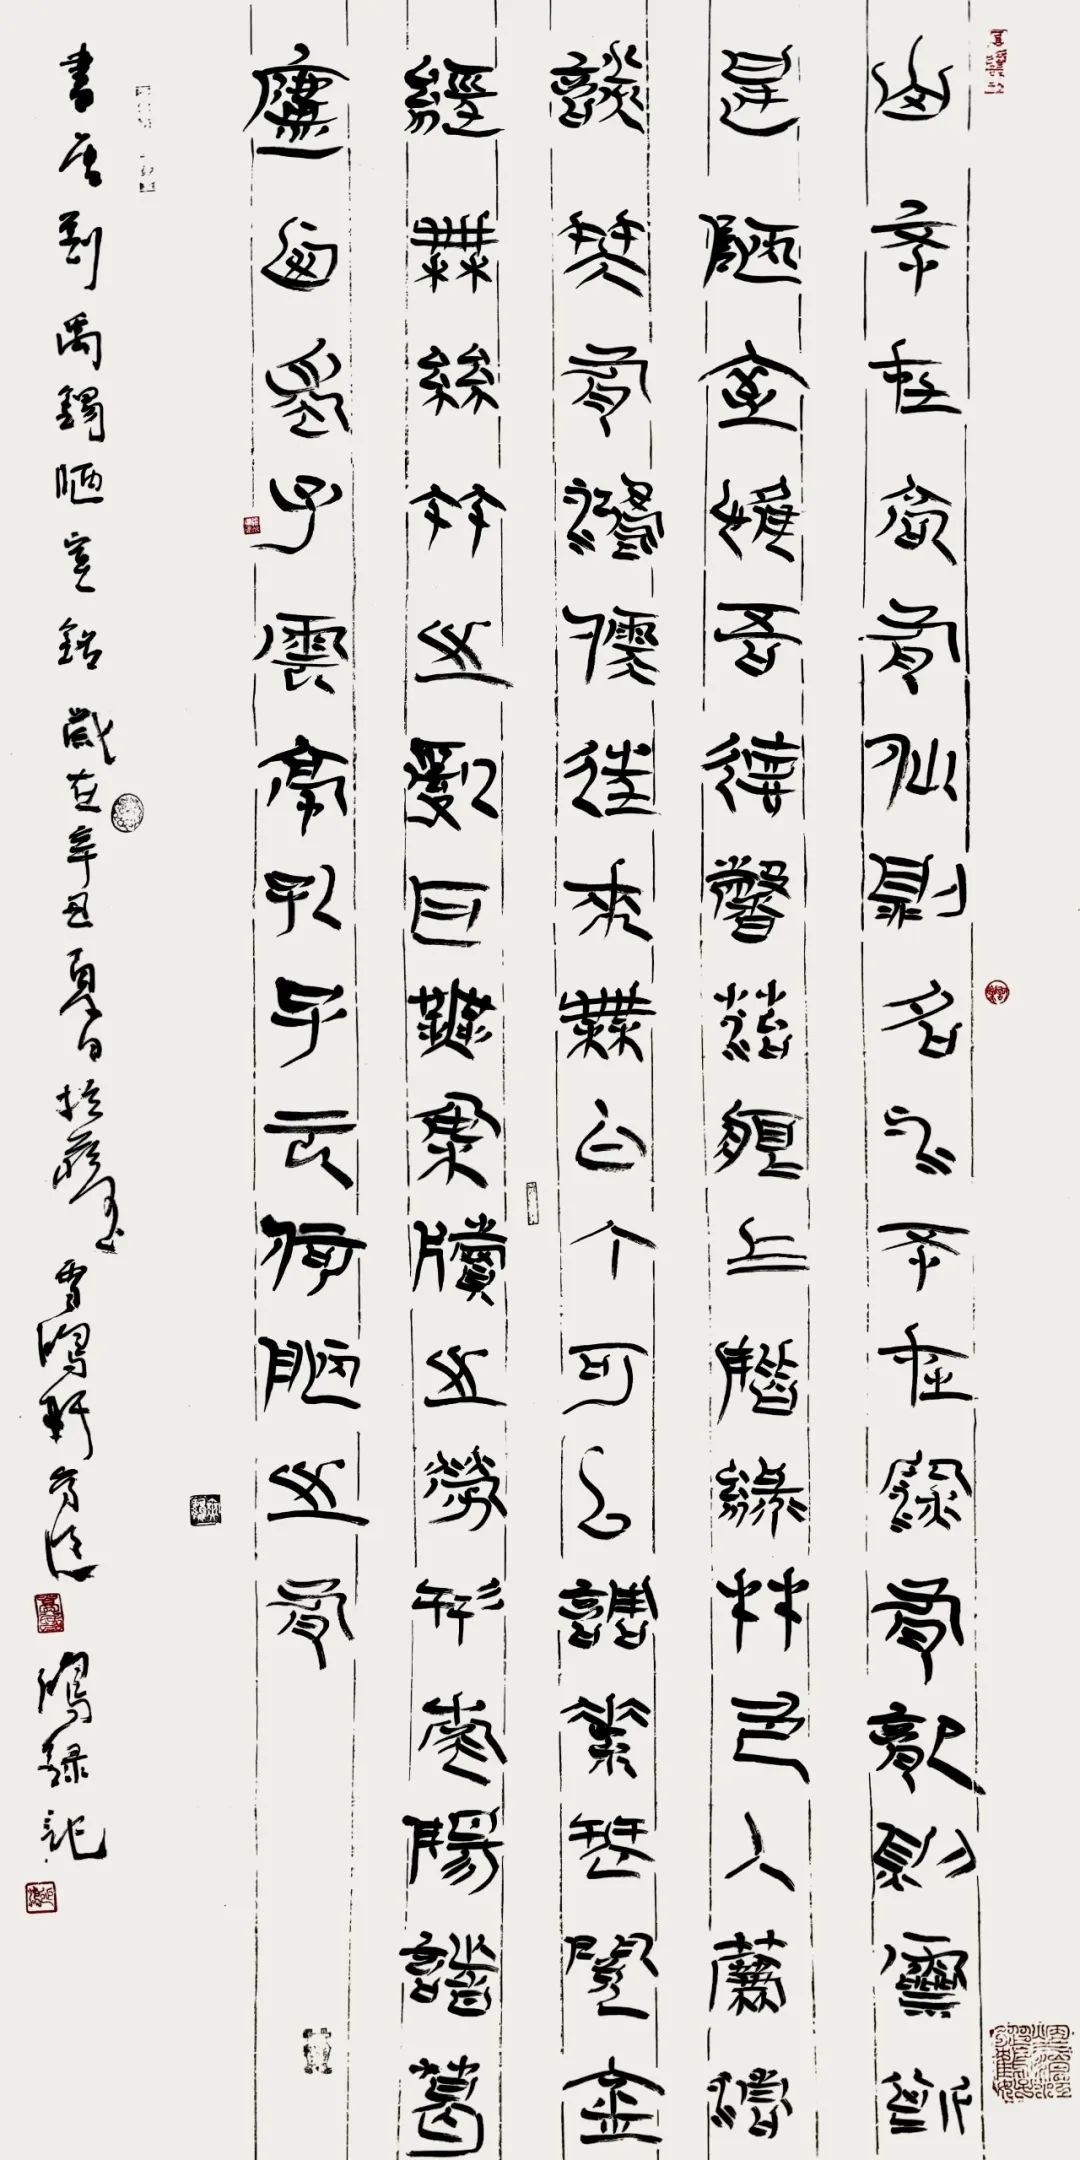 山不在高有仙則名水不在深有龍則靈斯
是陋室惟吾德馨苔痕上階綠草色入簾青
談笑有鴻儒往來無白丁可以調素琴閱金
經無絲竹之亂耳無案牘之勞形南陽諸葛
廬西蜀子雲亭孔子云何陋之有
書唐劉禹錫陋室銘歲在辛丑夏日於雪鴻軒鴻錄記